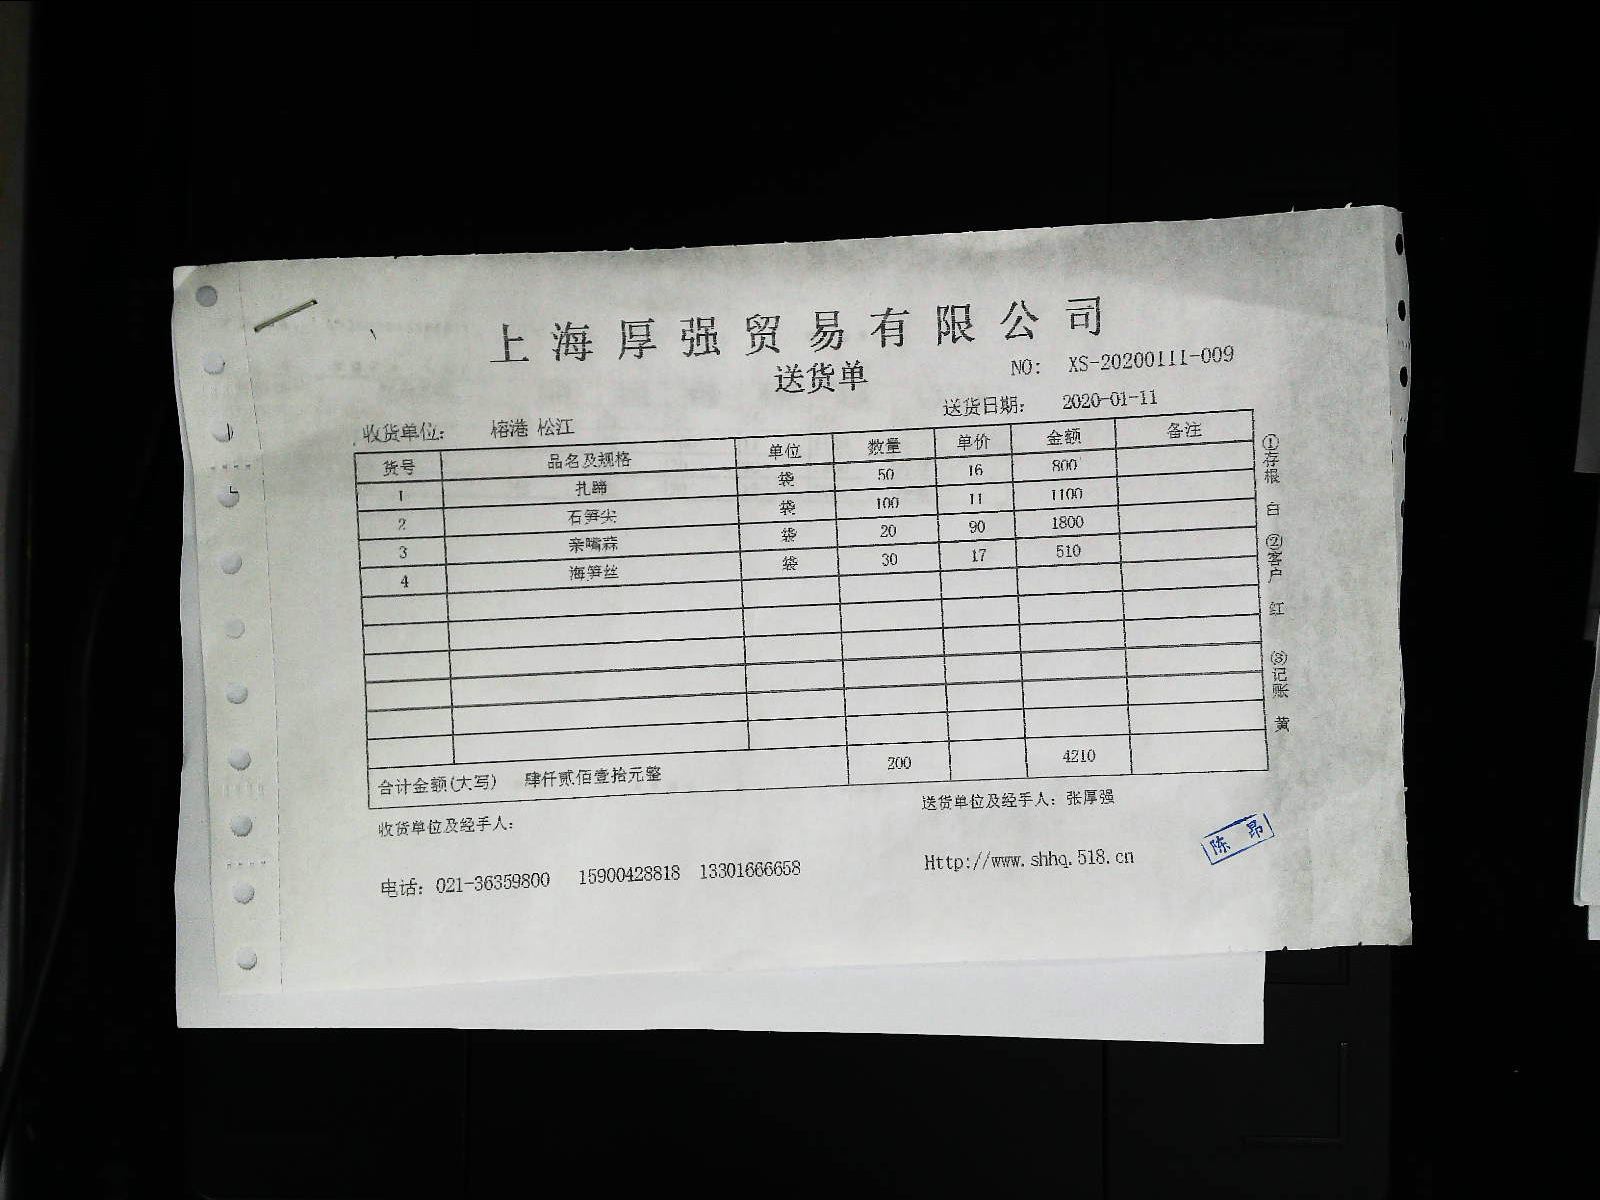 上海厚强贸易有限公司
送货单
NO: XS-20200111-009
送货日期: 2020-01-11
收货单位: 榕港 松江
货号 品名及规格 单位 数量 单价 金额 备注
1 扎蹄 袋 50 16 800
2 石笋尖 袋 100 11 1100
3 亲嘴蒜 袋 20 90 1800
4 海笋丝 袋 30 17 510
合计金额(大写) 肆仟贰佰壹拾元整 200 4210
收货单位及经手人:
送货单位及经手人: 张厚强
电话: 021-36359800 15900428818 13301666658
Http://www.shhq.518.cn
陈昂
①存根 白 ②客户 红 ③记账 黄